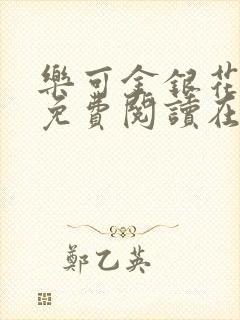 樂可金銀花
免費閱讀在
鄭乙英